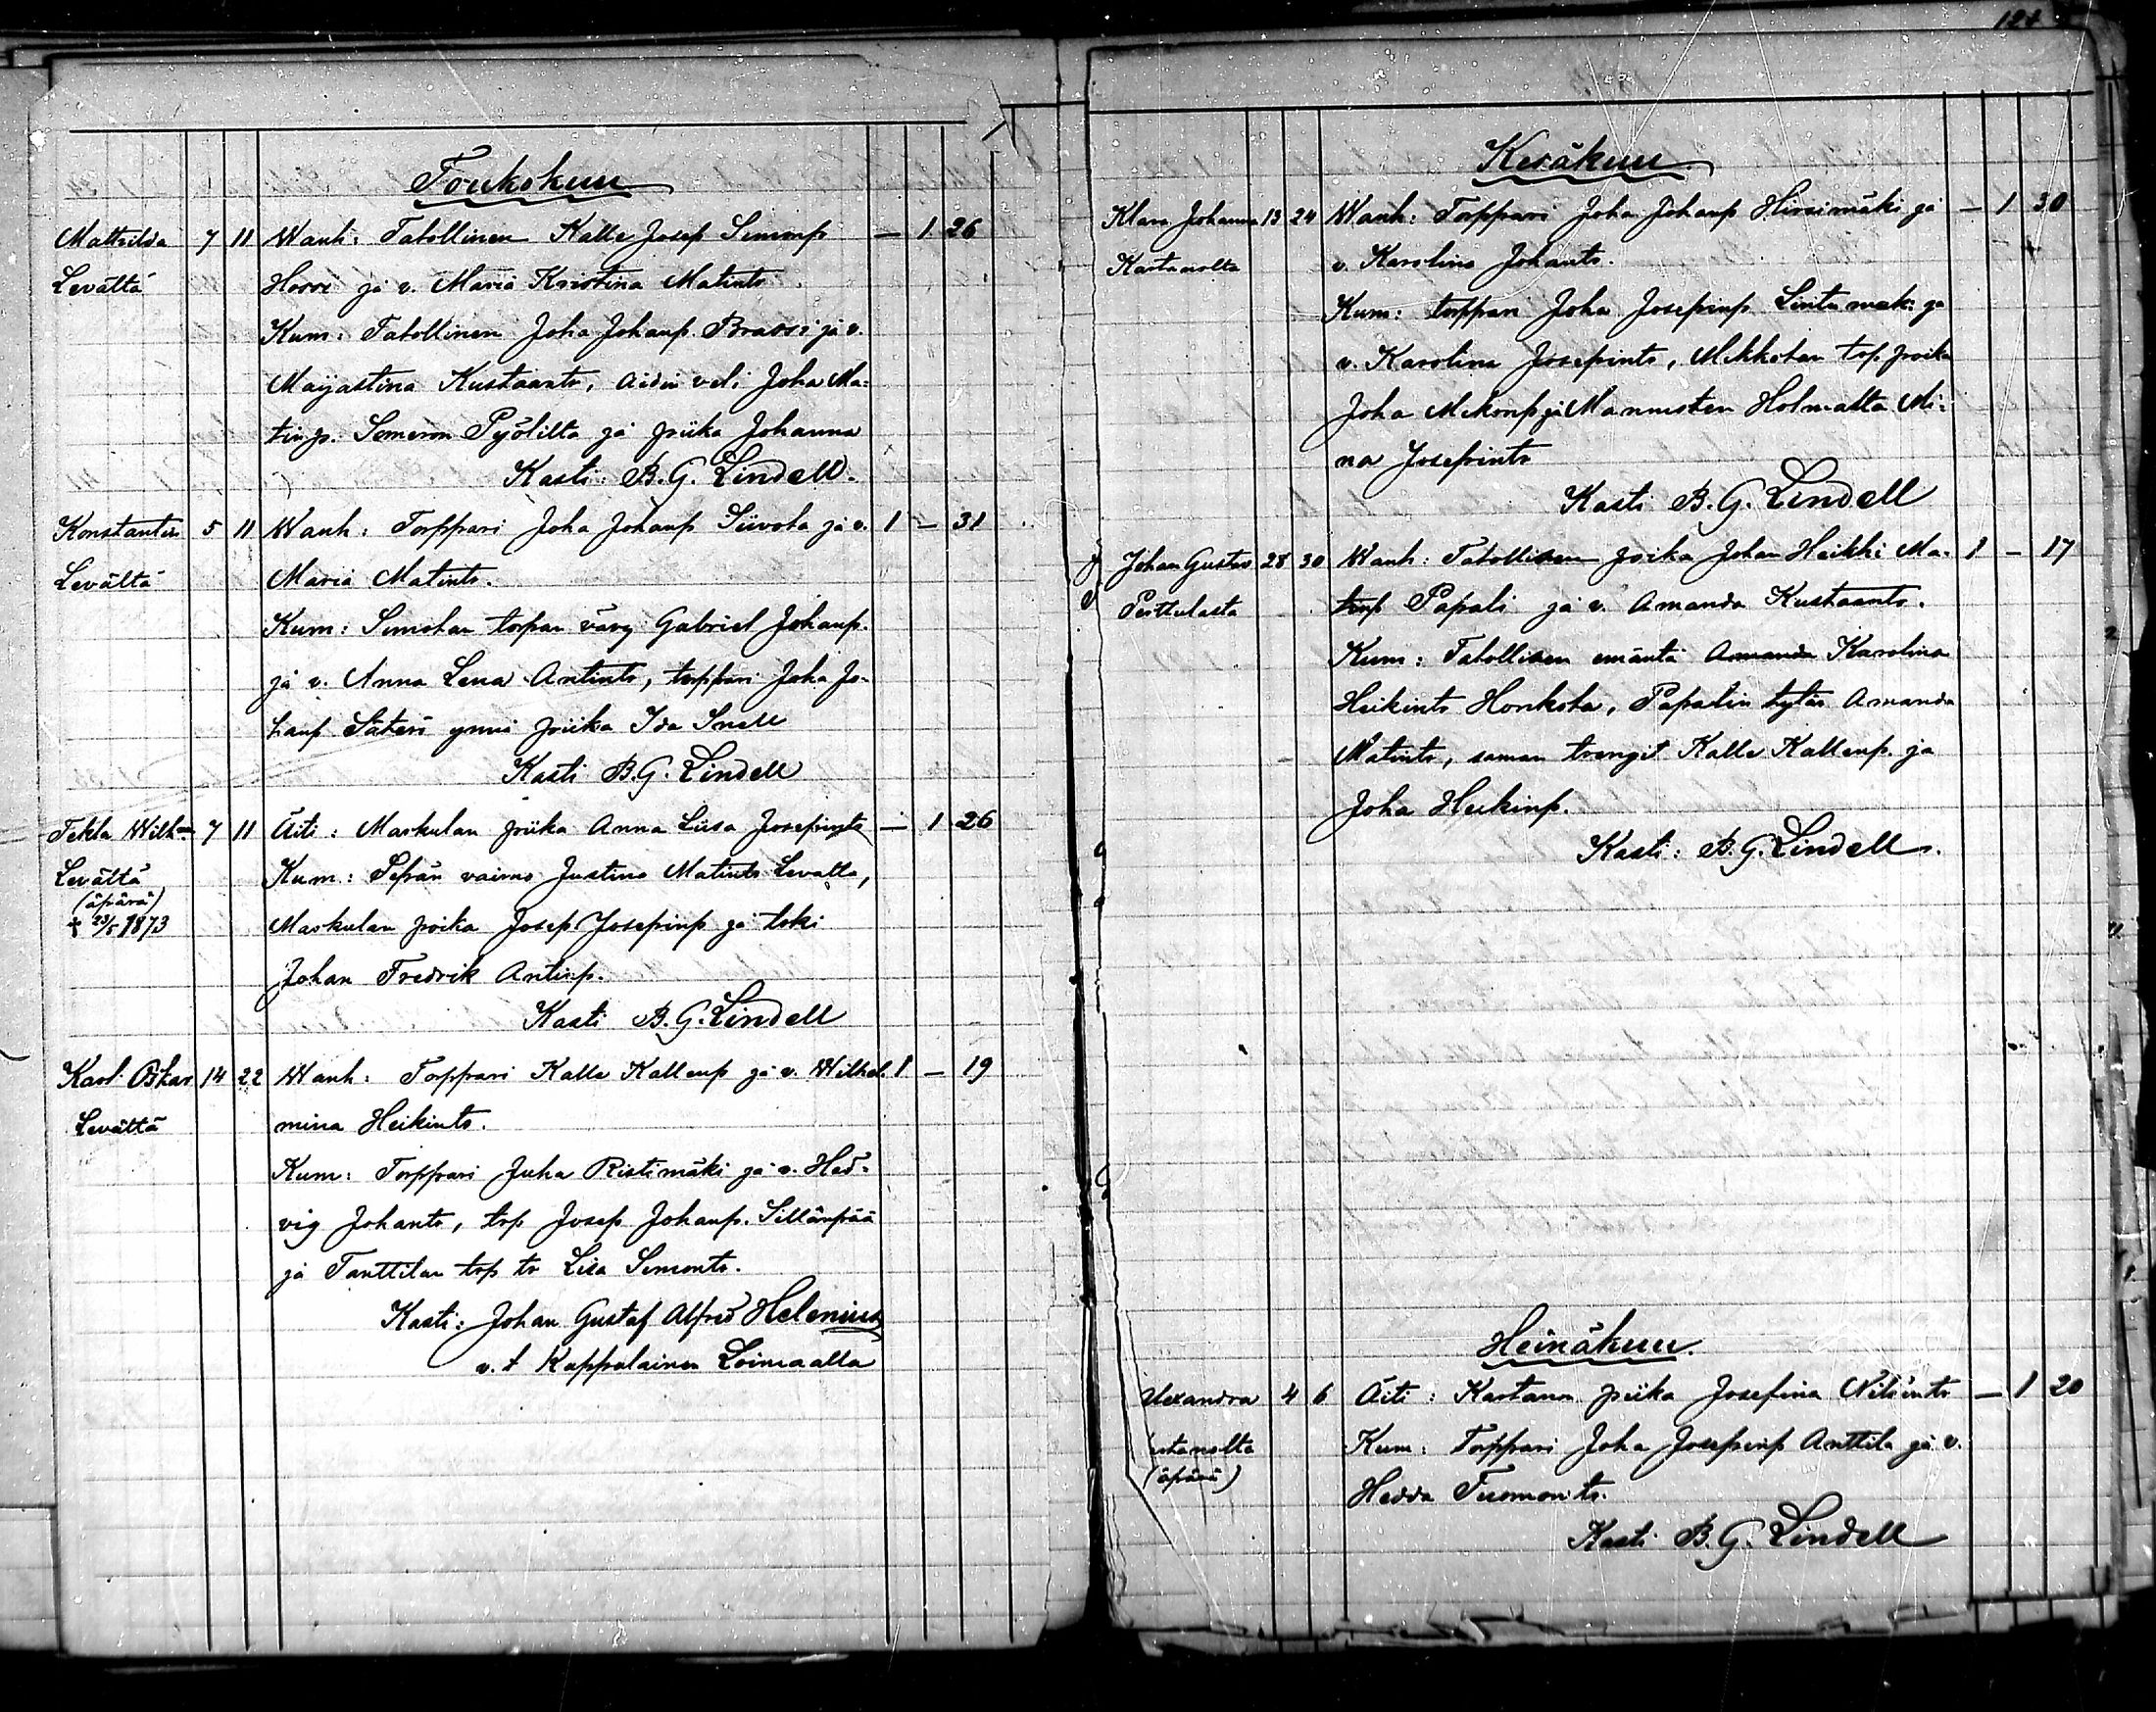 Toukokuu
Mathilda 7 11 Wanh: Talollinen Kalle Josep Simonp — 1 26
Levältä Horri ja v. Maria Kristina Matints
Kum: Talollinen Joha Johanp. Brassi ja v.
Maijastina Kustaants, äidin veli Joha Ma-
tinp. Someron Pyölilta ja piika Johanna
Kasti: B. G. Lindell.
Konstantin 5 11 Wanh: Torppari Joha Johanp Siivola ja v. 1 — 31
Levältä Maria Matints.
Kum: Simolan torpan vävy Gabriel Johanp.
ja v. Anna Lena Antints, torppari Joha Jo-
hanp Säteri ynnä piika Ida Snell
Kasti B. G. Lindell
Tekla Wilh— 7 11 Äiti: Maskulan piika Anna Liisa Josepints — 1 26
Levältä Kum: Sepän vaimo Justina Matints Levalta,
(äpärä)
† 23/5 1873 Maskulan poika Josep Josepinp ja loki
Johan Fredrik Antinp.
Kasti B. G. Lindell
Karl Oskar 14 22 Wanh: Torppari Kalle Kallenp ja v. Wilhel- 1 — 19
Levältä mina Heikints.
Kum: Torppari Juha Ristimäki ja v. Hed-
vig Johants, trp Josep Johanp. Sillänpää
ja Tanttilan trp tr Lisa Simonts.
Kasti: Johan Gustaf Alfred Helenius
v. t Kappalainen Loimaalla
124
Kesäkuu
Klara Johanna 13 24 Wanh: Torppari Joha Johanp Hirsimäki ja — 1 30
Kartanolta v. Karolina Johants.
Kum: torppari Joha Josepinp Lintumäki ja
v. Karolina Josepints, Mikkolan trp poika
Joha Mikonp ja Mannisten Holmalta Mi-
na Josepints
Kasti B. G. Lindell
Johan Gustav 28 30 Wanh: Talollisen poika Johan Heikki Ma- 1 — 17
Perttulasta tinp Papali ja v. Amanda Kustaants.
Kum: Talollisen emäntä Amanda Karolina
Heikints Honkola, Papalin tytär Amanda
Matints, saman trengit Kalle Kallenp. ja
Joha Heikinp.
Kasti: B. G. Lindell.
Heinäkuu.
lexandra 4 6 Äiti: Kartanon piika Josefina Nilsints — 1 20
rtanolta Kum: Torppari Joha Josepinp Anttila ja v.
(äpärä) Hedda Tuomonts.
Kasti B. G. Lindell